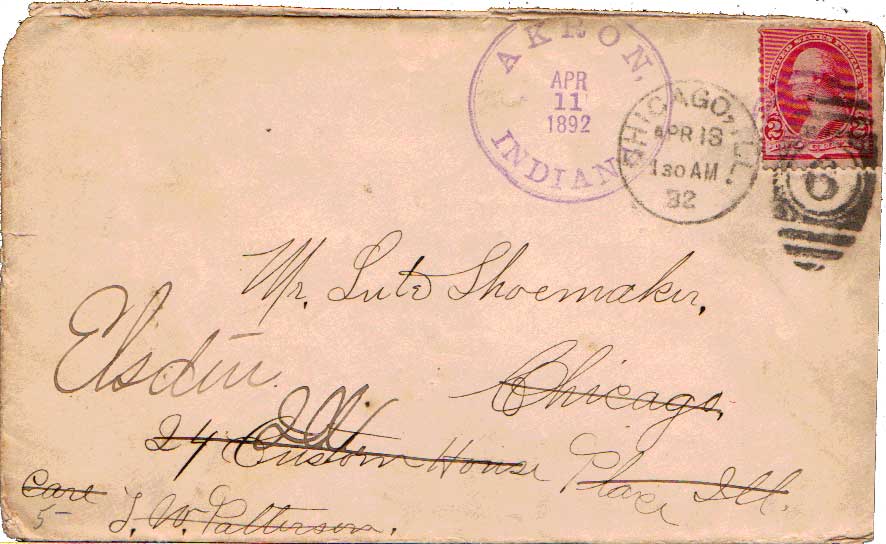 AKRON, INDIANA
APR
11
1892
CHICAGO, ILL.
APR 13
1 30 AM
92
UNITED STATES POSTAGE
2 2
6
Mr. Lute Shoemaker,
Elsdin
Chicago,
Ill
24 Custom House Place Ill.
Care
5
J. W. Patterson.